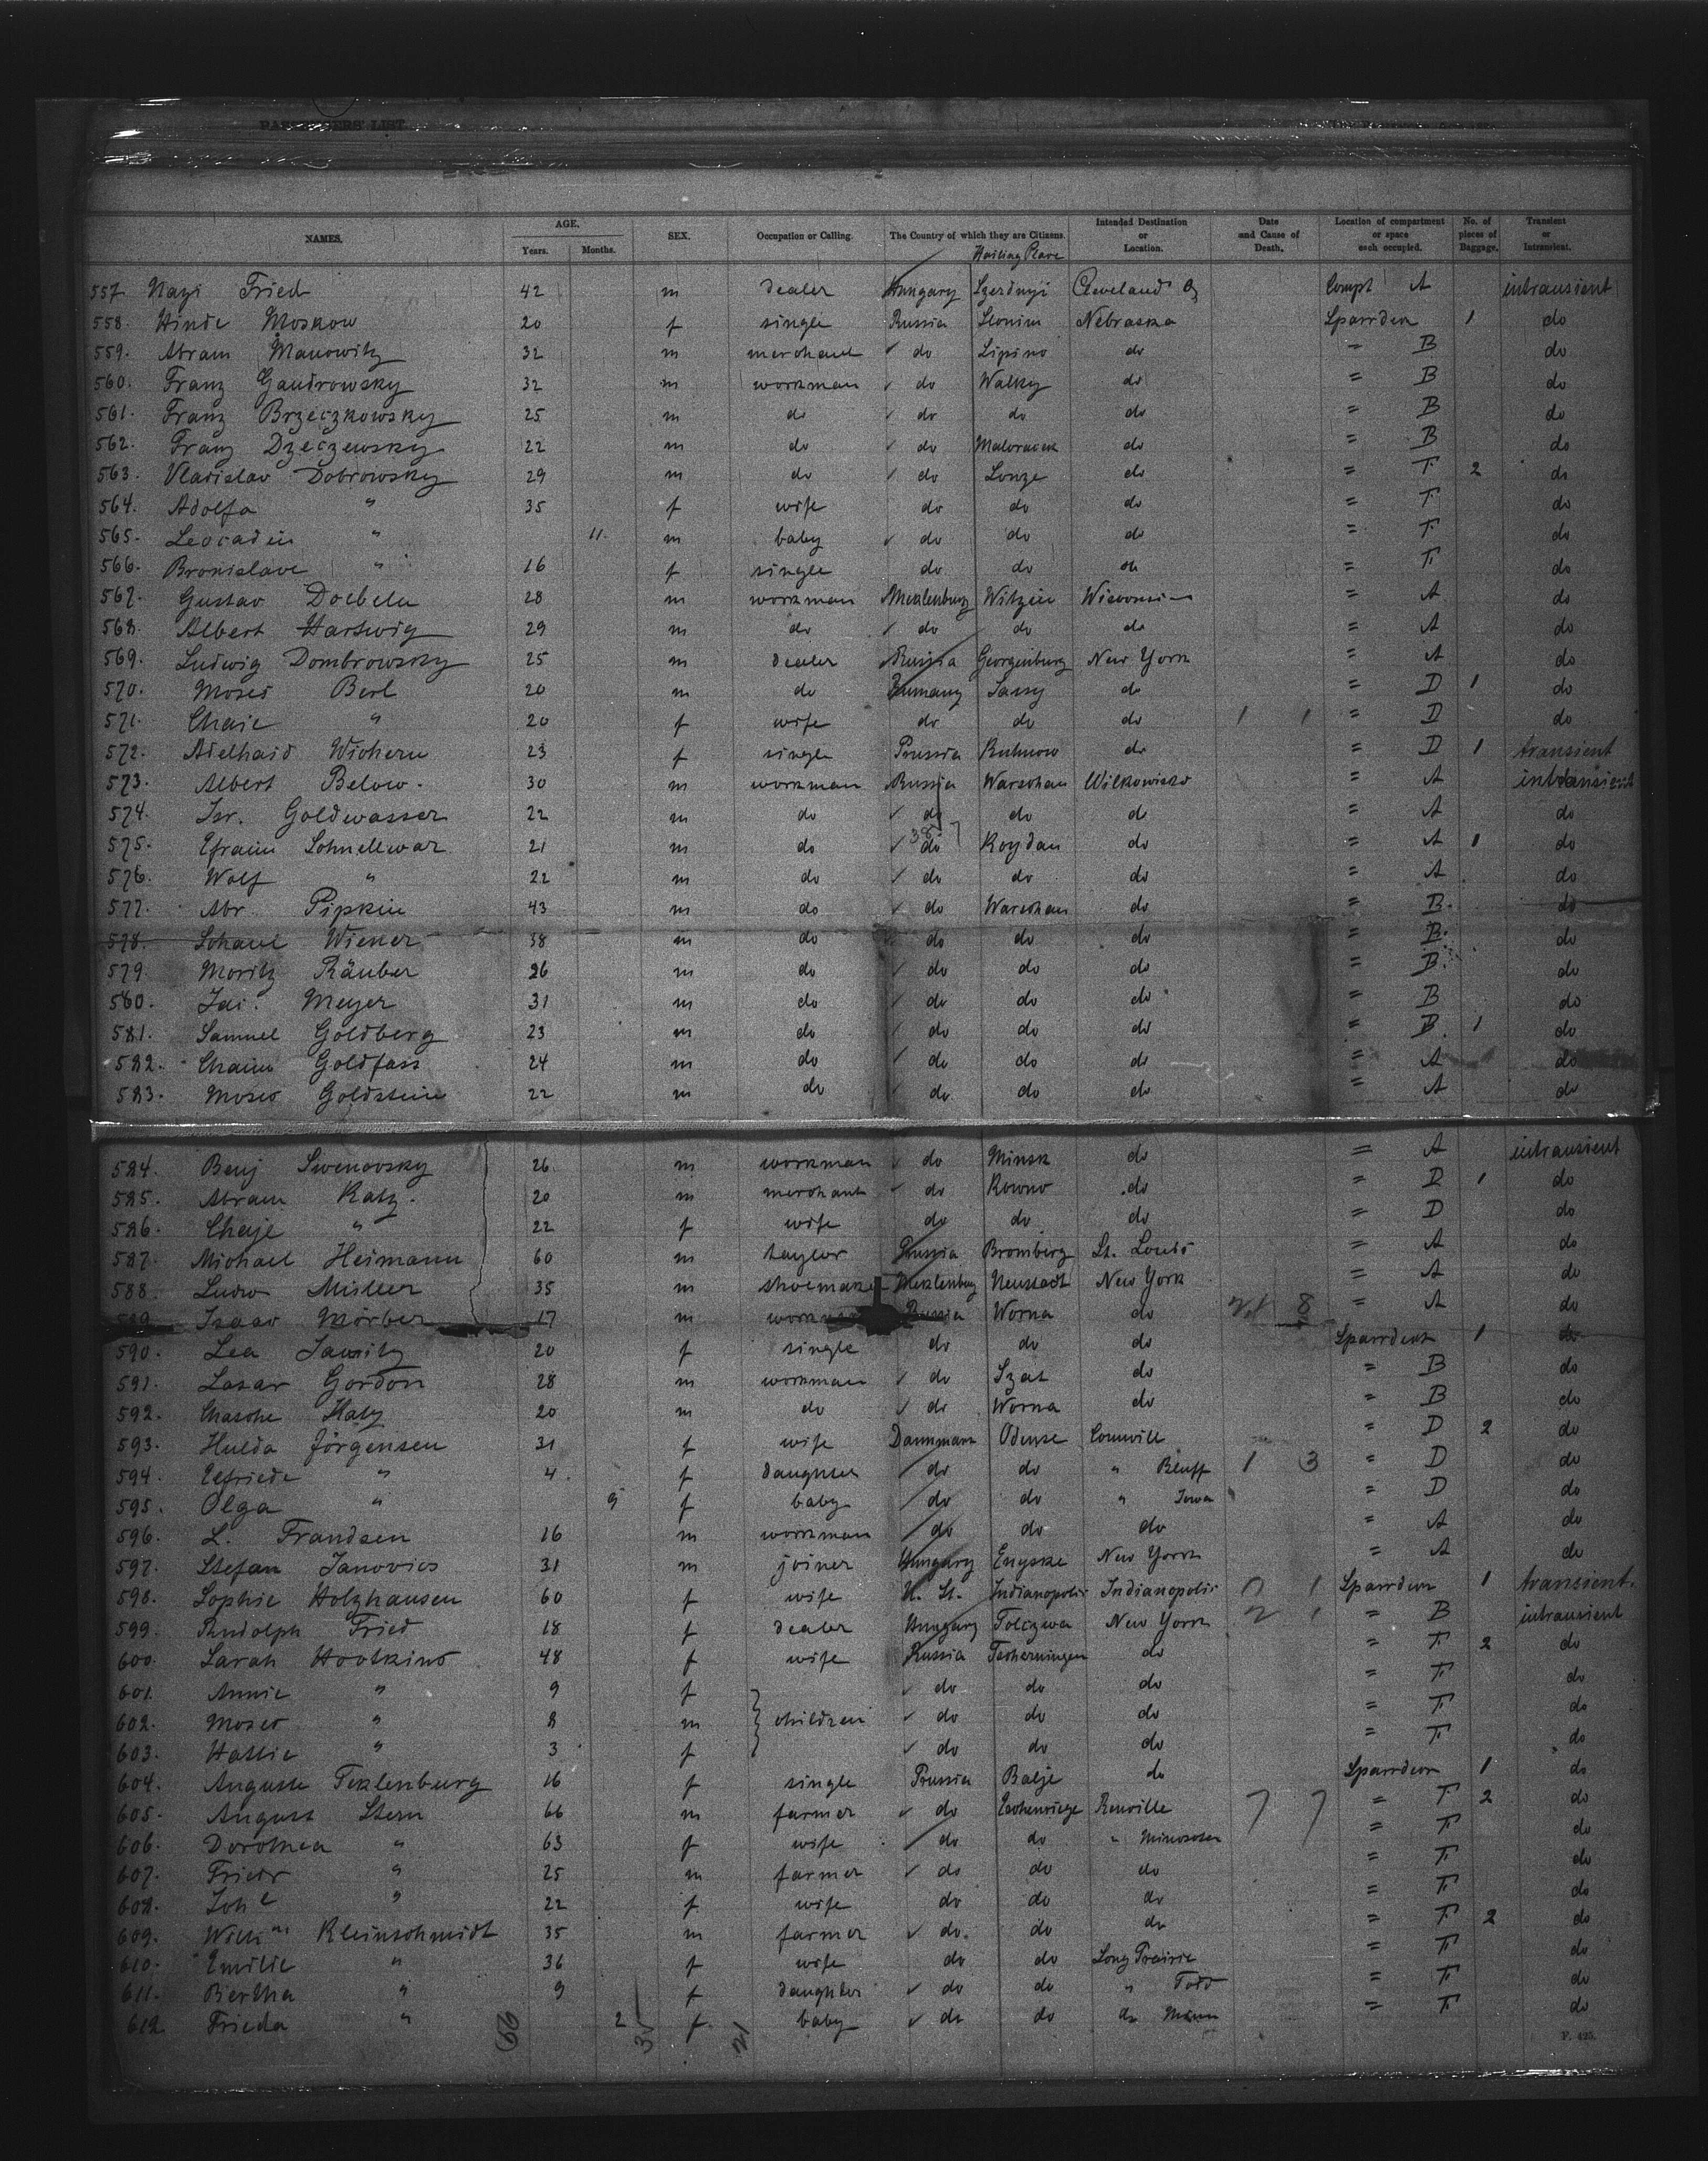 PASSENGERS' LIST.
NAMES. AGE. Years. Months. SEX. Occupation or Calling. The Country of which they are Citizens. Intended Destination or Location. Date and Cause of Death. Location of compartment or space each occupied. No. of pieces of Baggage. Transient or Intransient.
Hailing Place
557 Nazi Fried 42 m dealer Hungary Szerdnyi Cleveland O Compt A intransient
558. Hinde Moskow 20 f single Russia Slonim Nebraska Sparrdeck 1 do
559. Abram Manowitz 32 m merchant do Lipino do " B do
560. Franz Gaudrowsky 32 m workman do Walky do " B do
561. Franz Brzeczkowsky 25 m do do do do " B do
562. Franz Dzeczewsky 22 m do do do " B do
563. Vladislav Dobrowsky 29 m do do Lomze do " F 2 do
564. Adolfa " 35 f wife do do do " F do
565. Leocadia " 11 m baby do do do " F do
566. Bronislave " 16 f single do do do " F do
567. Gustav Doebeln 28 m workman Meklenburg Witzin Wisconsin " A do
568. Albert Hartwig 29 m do do do do " A do
569. Ludwig Dombrowsky 25 m dealer Russia Georgenburg New York " A do
570. Moses Berl 20 m do Rumany Jassy do " D 1 do
571. Chaie " 20 f wife do do do 1 1 " D do
572. Adelhaid Wichern 23 f single Prussia do " D 1 transient
573. Albert Below. 30 m workman Russia Warschau Wilkowisko " A intransient
574. Isr. Goldwasser 22 m do do do do " A do
575. Efraim Schnellwar 21 m do do Koydan do " A 1 do
576. Wolf " 22 m do do do do " A do
577. Abr Pipkin 43 m do do Warschau do " B. do
578. Schaul Wiener 38 m do do do do " B. do
579 Moritz Räuber 26 m do do do do " B. do
580. Meyer 31 m do do do do " B do
581. Samuel Goldberg 23 m do do do do " B. 1 do
582. Chaim Goldfass 24 m do do do do " A do
583. Moses Goldstein 22 m do do do do " A do
584. Benj Swenovsky 26 m workman do Minsk do " A intransient
585. Abram Katz. 20 m merchant do Kowno do " D 1 do
586. Chaje " 22 f wife do do do " D do
587. Michael Heimann 60 m taylor Prussia Bromberg St. Louis " A do
588. Ludw Müller 35 m shoemaker Meklenburg Neustadt New York " A do
589. Isaac Mörber 17 m workman Russia Worna do 8 " A do
590. Lea 20 f single do do do Sparrdeck 1 do
591. Lasar Gordon 28 m workman do Szat do " B do
592. Chasche Katz 20 m do do Worna do " B do
593. Hulda Jörgensen 31 f wife Dannmark Odense Counsill " D 2 do
594. Elfriede " 4. f daughter do do " Bluff 1 3 " D do
595. Olga " 9 f baby do do " Iowa " D do
596. L. Frandsen 16 m workman do do do " A do
597. Stefan Janovics 31 m joiner Hungary Enyske New York " A do
598. Sophie Holzhausen 60 f wife U. St. Indianopolis Indianopolis 0 1 Sparrdeck 1 transient.
599. Rudolph Fried 18 f dealer Hungary Tolczwa New York 2 1 " B intransient
600. Sarah Hootkins 48 f wife Russia do " F 2 do
601. Annie " 9 f do do do " F do
602. Moses " 8 m } children do do do " F do
603. Hattie " 3 f do do do " F do
604. Auguste Teklenburg 16 f single Prussia Balje do Sparrdeck 1 do
605. August Stern 66 m farmer do Renville 7 7 " F 2 do
606. Dorothea " 63 f wife do do " Minesota " F do
607. Friedr " 25 m farmer do do do " F do
608. Joh " 22 f wife do do do " F do
609. Wilhm Kleinschmidt 35 m farmer do. do do " F 2 do
610. Emilie " 36 f wife do do Long Prairie " F do
611. Bertha " 9 f daughter do do " Todd " F do
612. Frieda " 2 f. baby do do do Minn " F do
66 35 21
F. 425.